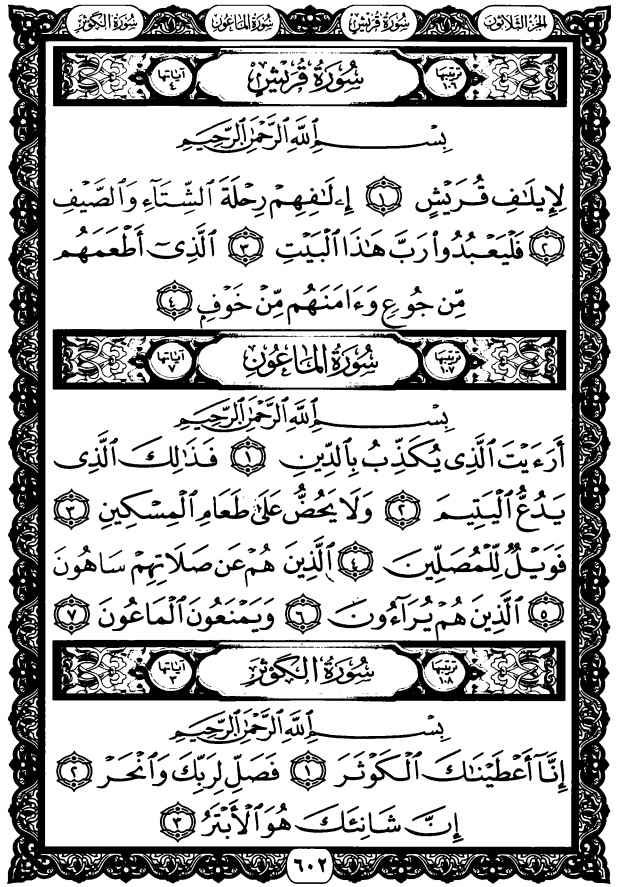 الجزء الثلاثون سورة قريش سورة الماعون سورة الكوثر
ترتيبها ١٠٦ سُورَةُ قُرَيْشٍ آياتها ٤
بِسْمِ اللَّهِ الرَّحْمَٰنِ الرَّحِيمِ
لِإِيلَافِ قُرَيْشٍ ١ إِۦلَافِهِمْ رِحْلَةَ الشِّتَاءِ وَالصَّيْفِ
٢ فَلْيَعْبُدُوا رَبَّ هَٰذَا الْبَيْتِ ٣ الَّذِي أَطْعَمَهُم
مِّن جُوعٍ وَءَامَنَهُم مِّنْ خَوْفٍ ٤
ترتيبها ١٠٧ سُورَةُ الْمَاعُونِ آياتها ٧
بِسْمِ اللَّهِ الرَّحْمَٰنِ الرَّحِيمِ
أَرَءَيْتَ الَّذِي يُكَذِّبُ بِالدِّينِ ١ فَذَٰلِكَ الَّذِي
يَدُعُّ الْيَتِيمَ ٢ وَلَا يَحُضُّ عَلَىٰ طَعَامِ الْمِسْكِينِ ٣
فَوَيْلٌ لِّلْمُصَلِّينَ ٤ الَّذِينَ هُمْ عَن صَلَاتِهِمْ سَاهُونَ
٥ الَّذِينَ هُمْ يُرَآءُونَ ٦ وَيَمْنَعُونَ الْمَاعُونَ ٧
ترتيبها ١٠٨ سُورَةُ الْكَوْثَرِ آياتها ٣
بِسْمِ اللَّهِ الرَّحْمَٰنِ الرَّحِيمِ
إِنَّا أَعْطَيْنَاكَ الْكَوْثَرَ ١ فَصَلِّ لِرَبِّكَ وَانْحَرْ ٢
إِنَّ شَانِئَكَ هُوَ الْأَبْتَرُ ٣
٦٠٢